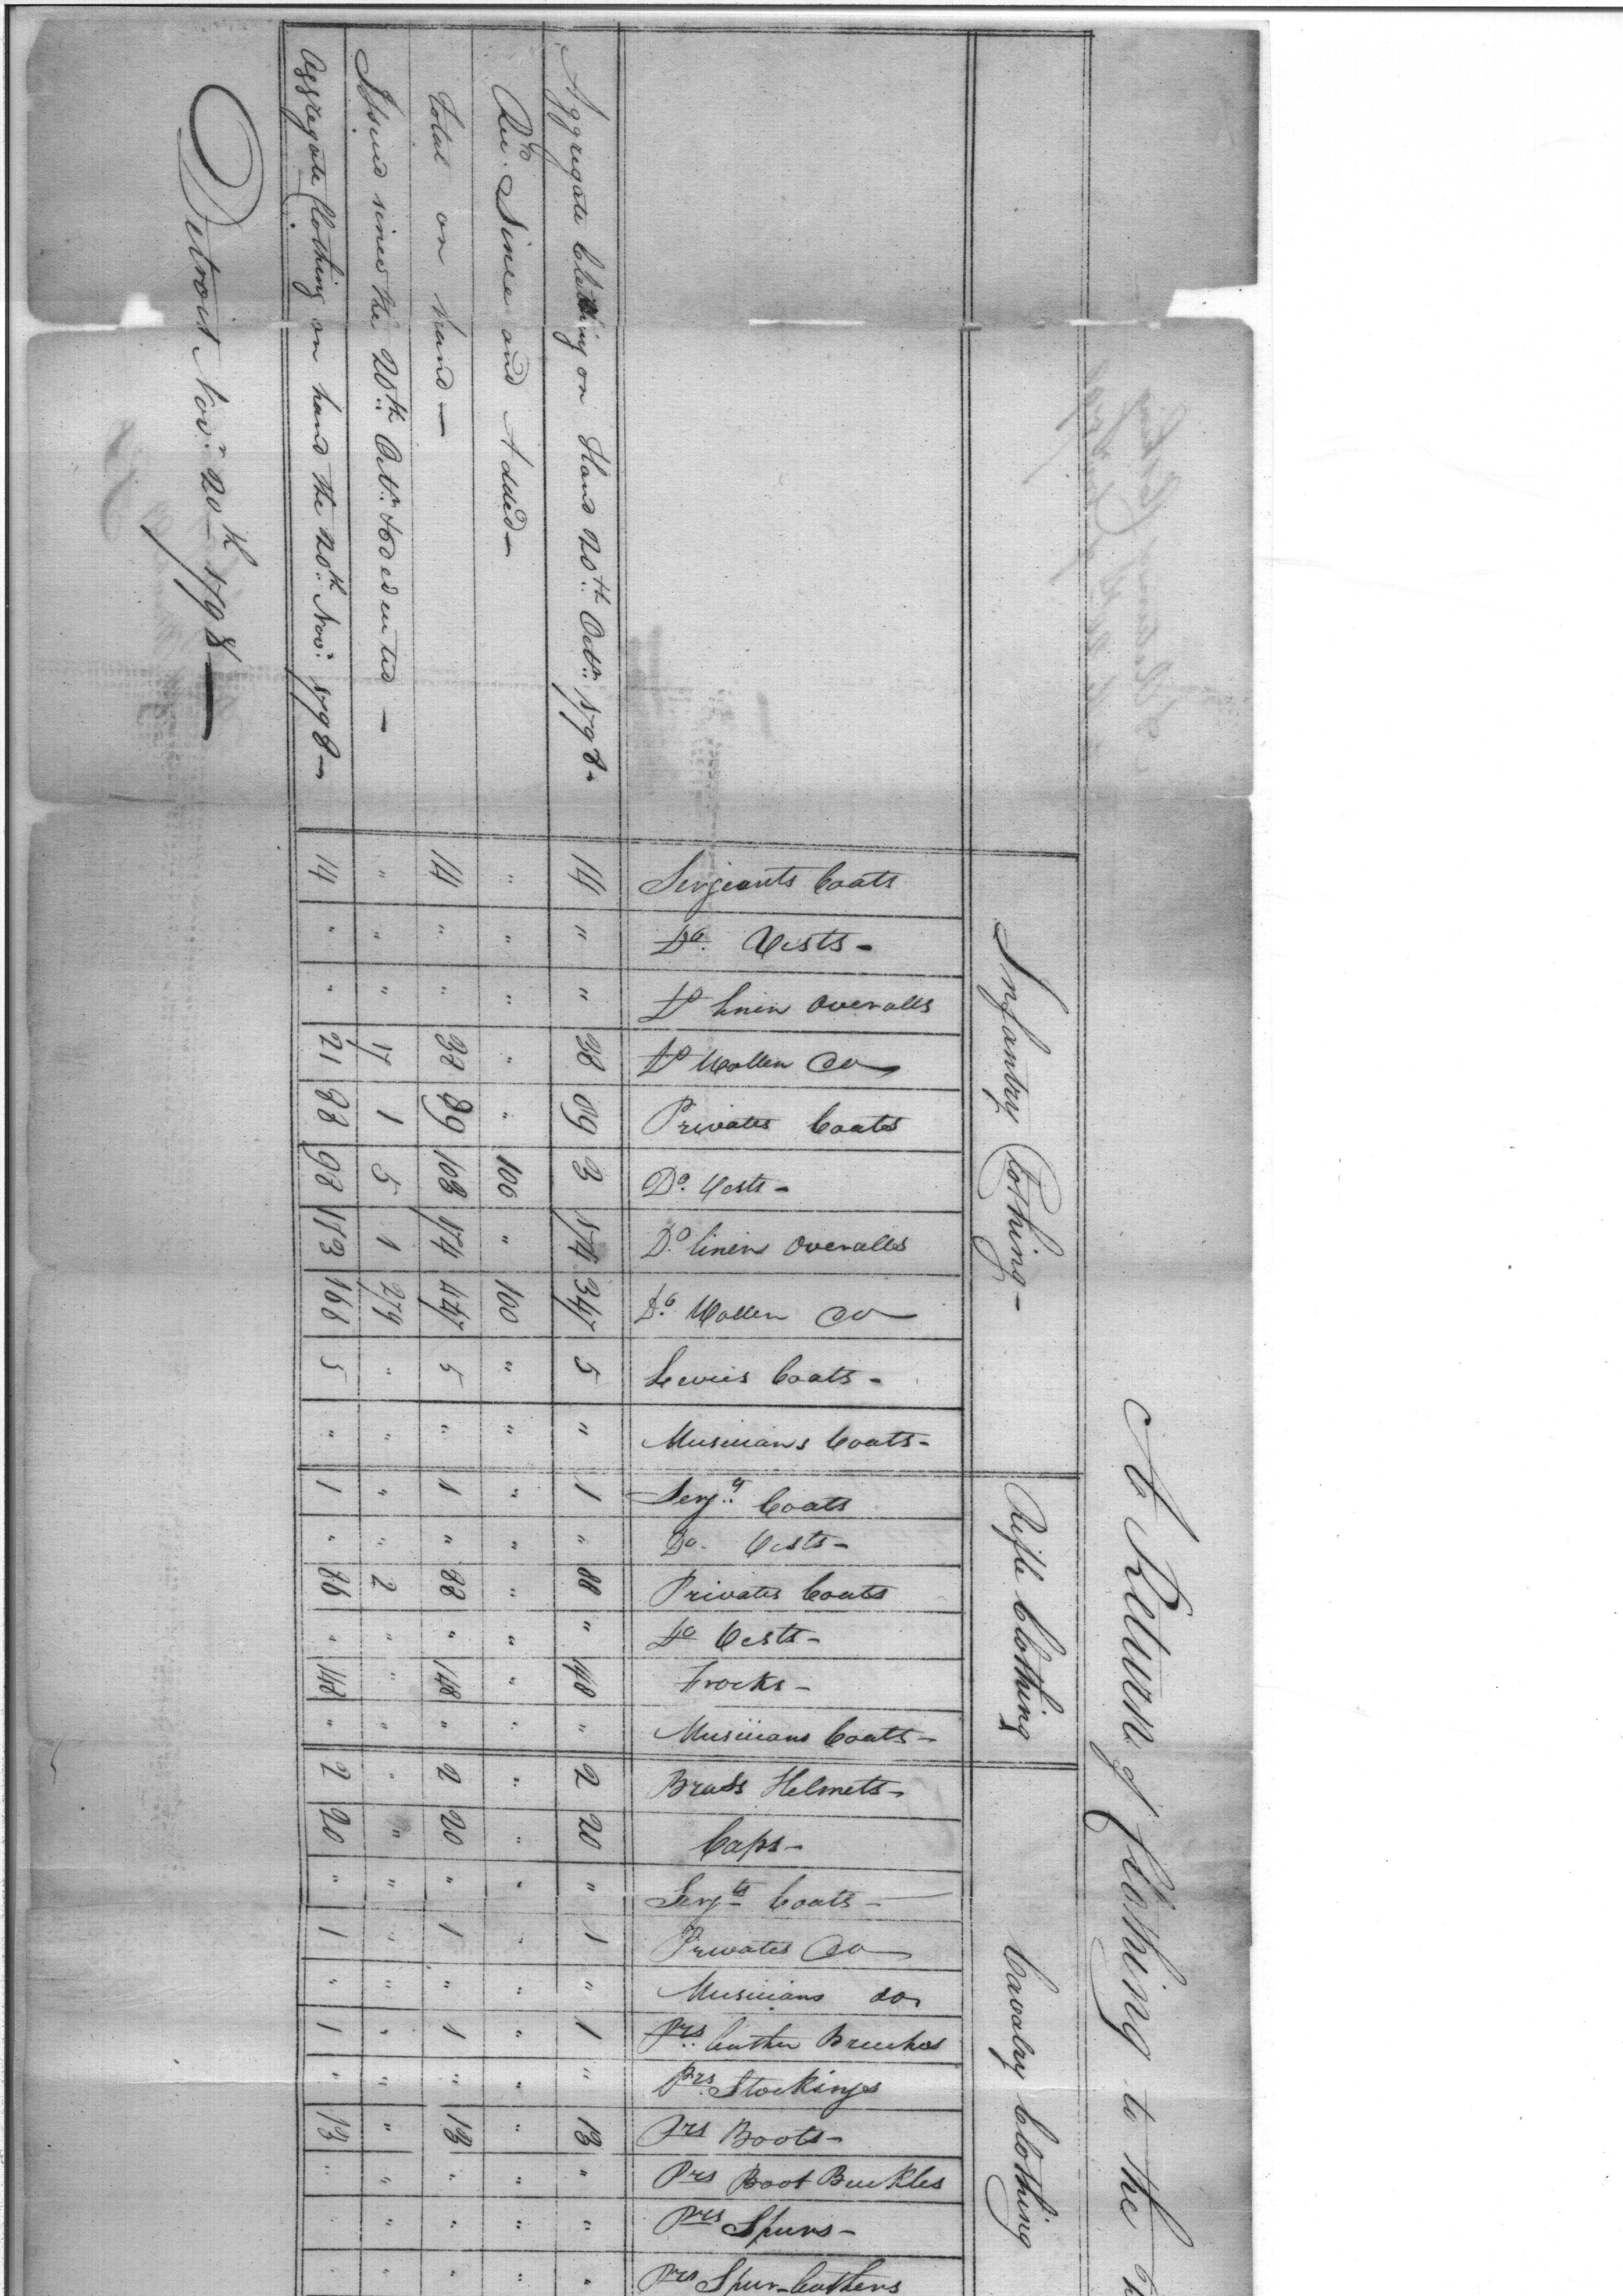 A Return of Clothing to the
Infantry Clothing -
Rifle Clothing
Cavalry Clothing
Sergeants Coats
Do. Vests -
Do linen Overalls
Do Wollen Do
Privates Coats
Do. Vests -
Do. linen Overalls
Do. Wollen Do
Levies Coats -
Musicians Coats -
Serjts. Coats
Do. Vests -
Privates Coats
Do Vests -
Frocks -
Musicians Coats -
Brass Helmets -
Caps -
Serjts Coats -
Privates Do
Musicians do
Prs. leather Breeches
Prs. Stockings
Prs Boots -
Prs Boot Buckles
Prs Spurs -
Prs Spur leathers
Aggregate Clothing on Hand 20th. Octr. 1798. 14 " " 38 89 3 174 347 5 " 1 " 88 " 148 " 2 20 " 1 " 1 " 13 " " "
Recd. Since and Added - " " " " " 100 " 100 " " " " " " " " " " " " " " " " " " "
Total on hand - 14 " " 38 89 103 174 447 5 " 1 " 88 " 148 " 2 20 " 1 " 1 " 13 " " "
Issued since the 20th. Octr. & deducted - " " " 17 1 5 1 279 " " " " 2 " " " " " " " " " " " " " "
Aggregate Clothing on hand the 20th. Novr. 1798 - 14 " " 21 88 98 173 168 5 " 1 " 86 " 148 " 2 20 " 1 " 1 " 13 " " "
Detroit Novr. 20th 1798 -